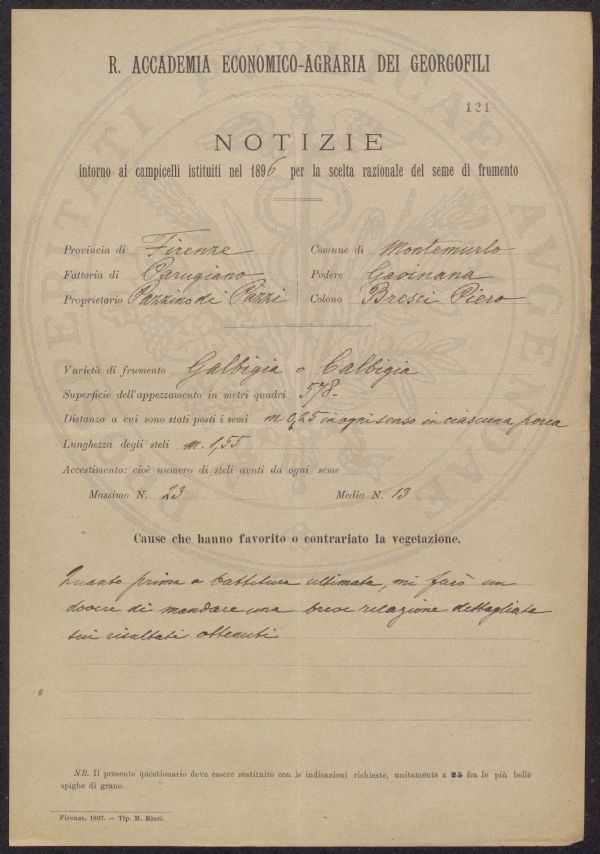 R. ACCADEMIA ECONOMICO-AGRARIA DEI GEORGOFILI
121
NOTIZIE
intorno ai campicelli istituiti nel 1896 per la scelta razionale del seme di frumento
Provincia di Firenze Comune di Montemurlo
Fattoria di Parugiano Podere Gavinana
Proprietario Pazzino de' Pazzi Colono Bresci Piero
Varietà di frumento Galbigia o Calbigia
Superficie dell'appezzamento in metri quadri 578.
Distanza a cui sono stati posti i semi m 0,25 in ogni senso in ciascuna porca
Lunghezza degli steli m. 1,55
Accestimento: cioè numero di steli avuti da ogni seme
Massimo N. 23 Media N. 13
Cause che hanno favorito o contrariato la vegetazione.
Quanto prima a battitura ultimata, mi farò un
dovere di mandare una breve relazione dettagliata
sui risultati ottenuti
NB. Il presente questionario deve essere restituito con le indicazioni richieste, unitamente a 25 fra le più belle
spighe di grano.
Firenze, 1897. — Tip. M. Ricci.